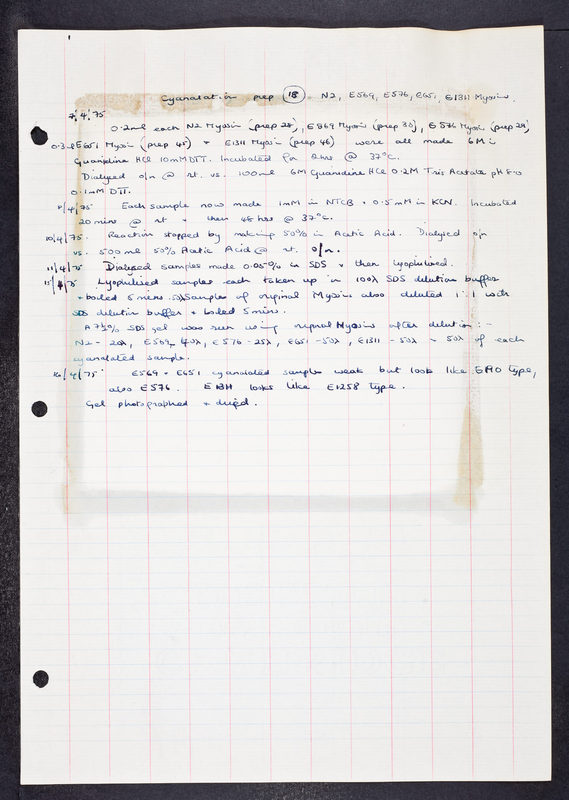 Cyanalation prep 18. N2, E569, E576, E651, E1311 Myosins.
7/4/75
0.2ml each N2 Myosin (prep 28), E569 Myosin (prep 30), E576 Myosin (prep 29)
0.3ml E651 Myosin (prep 45) + E1311 Myosin (prep 46) were all made 6M in
Guanidine HCl 10mM DTT. Incubated for 2hrs @ 37°C.
Dialysed o/n @ rt. vs. 100ml 6M Guanidine HCl 0.2M Tris Acetate pH 8.0
0.1mM DTT.
8/4/75 Each sample now made 1mM in NTCB + 0.5mM in KCN. Incubated
20 mins @ rt + then 48 hrs @ 37°C.
10/4/75. Reaction stopped by making 50% in Acetic Acid. Dialysed o/n
vs. 500ml 50% Acetic Acid @ rt. o/n.
11/4/75 Dialysed samples made 0.05% in SDS + then lyophilised.
15/4/75 Lyophilised samples each taken up in 100λ SDS dilution buffer
+ boiled 5 mins. Samples of original Myosins also diluted 1:1 with
SDS dilution buffer + boiled 5 mins.
A 7½% SDS gel was run using original Myosins after dilution :-
N2 - 20λ, E569 - 40λ, E576 - 25λ, E651 - 50λ, E1311 - 50λ + 50λ of each
cyanalated sample.
16/4/75 E569 + E651 cyanalated samples weak but look like type,
also E576. E1311 looks like E1258 type.
Gel photographed + dried.